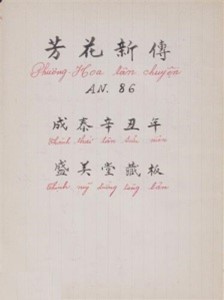 芳花新傳
Phương-Hoa tân chuyện
AN. 86
成泰辛丑年
Thành thái tân sửu niên
盛美堂藏板
Thịnh mỹ đường tàng bản